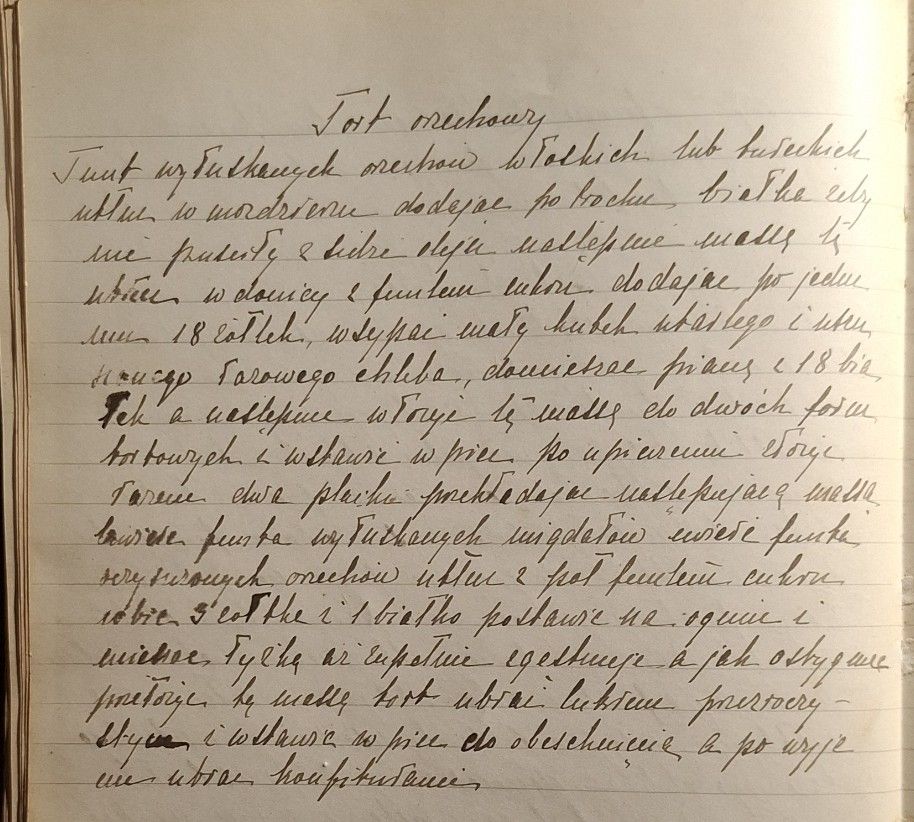 Tort orzechowy
Funt wyłuskanych orzechów włoskich lub tureckich
utłuc w moździerzu dodając po trochu białka żeby
nie puściły z siebie oleju następnie massę tę
utrzeć w donicy z funtem cukru dodając po jedne
mu 18 żółtek, wsypać mały kubek utartego i usu
szonego razowego chleba, domieszać pianę z 18 bia
łek a następnie włożyć tę massę do dwóch form
tortowych i wstawić w piec po upieczeniu złożyć
razem dwa placki przekładając następującą massą
ćwierć funta wyłuskanych migdałów ćwierć funta
orzechów utłuc z pół funtem cukru
wbić 3 żółtka i 1 białko postawić na ogniu i
mieszać łyżką aż zupełnie zgęstnieje a jak ostygnie
przełożyć tą massą tort ubrać lukrem przezroczy-
stym i wstawić w piec do obeschnięcia a po wyję
ciu ubrać konfiturami